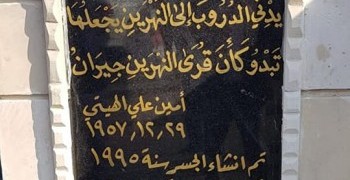 يدني الدروب إلى النهرين يجعلها
تبدو كأن قرى النهرين جيران
أمين علي الهيتي
١٩٥٧,١٢,٢٩
تم انشاء الجسر سنة ١٩٩٥